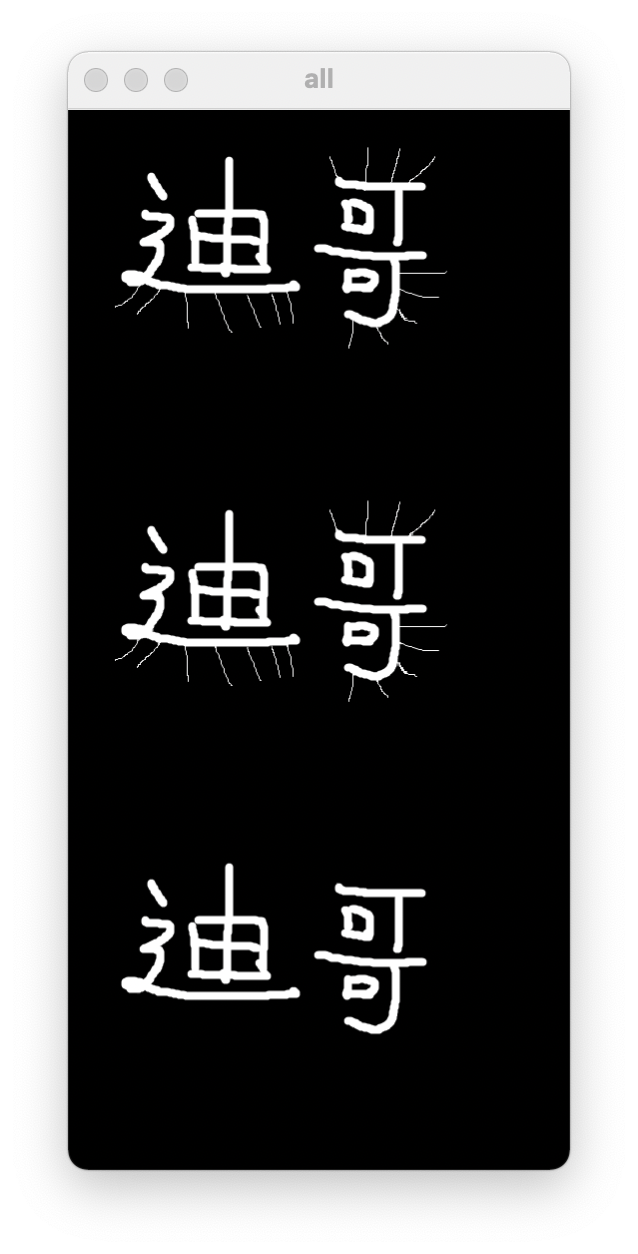 all
迪哥
迪哥
迪哥